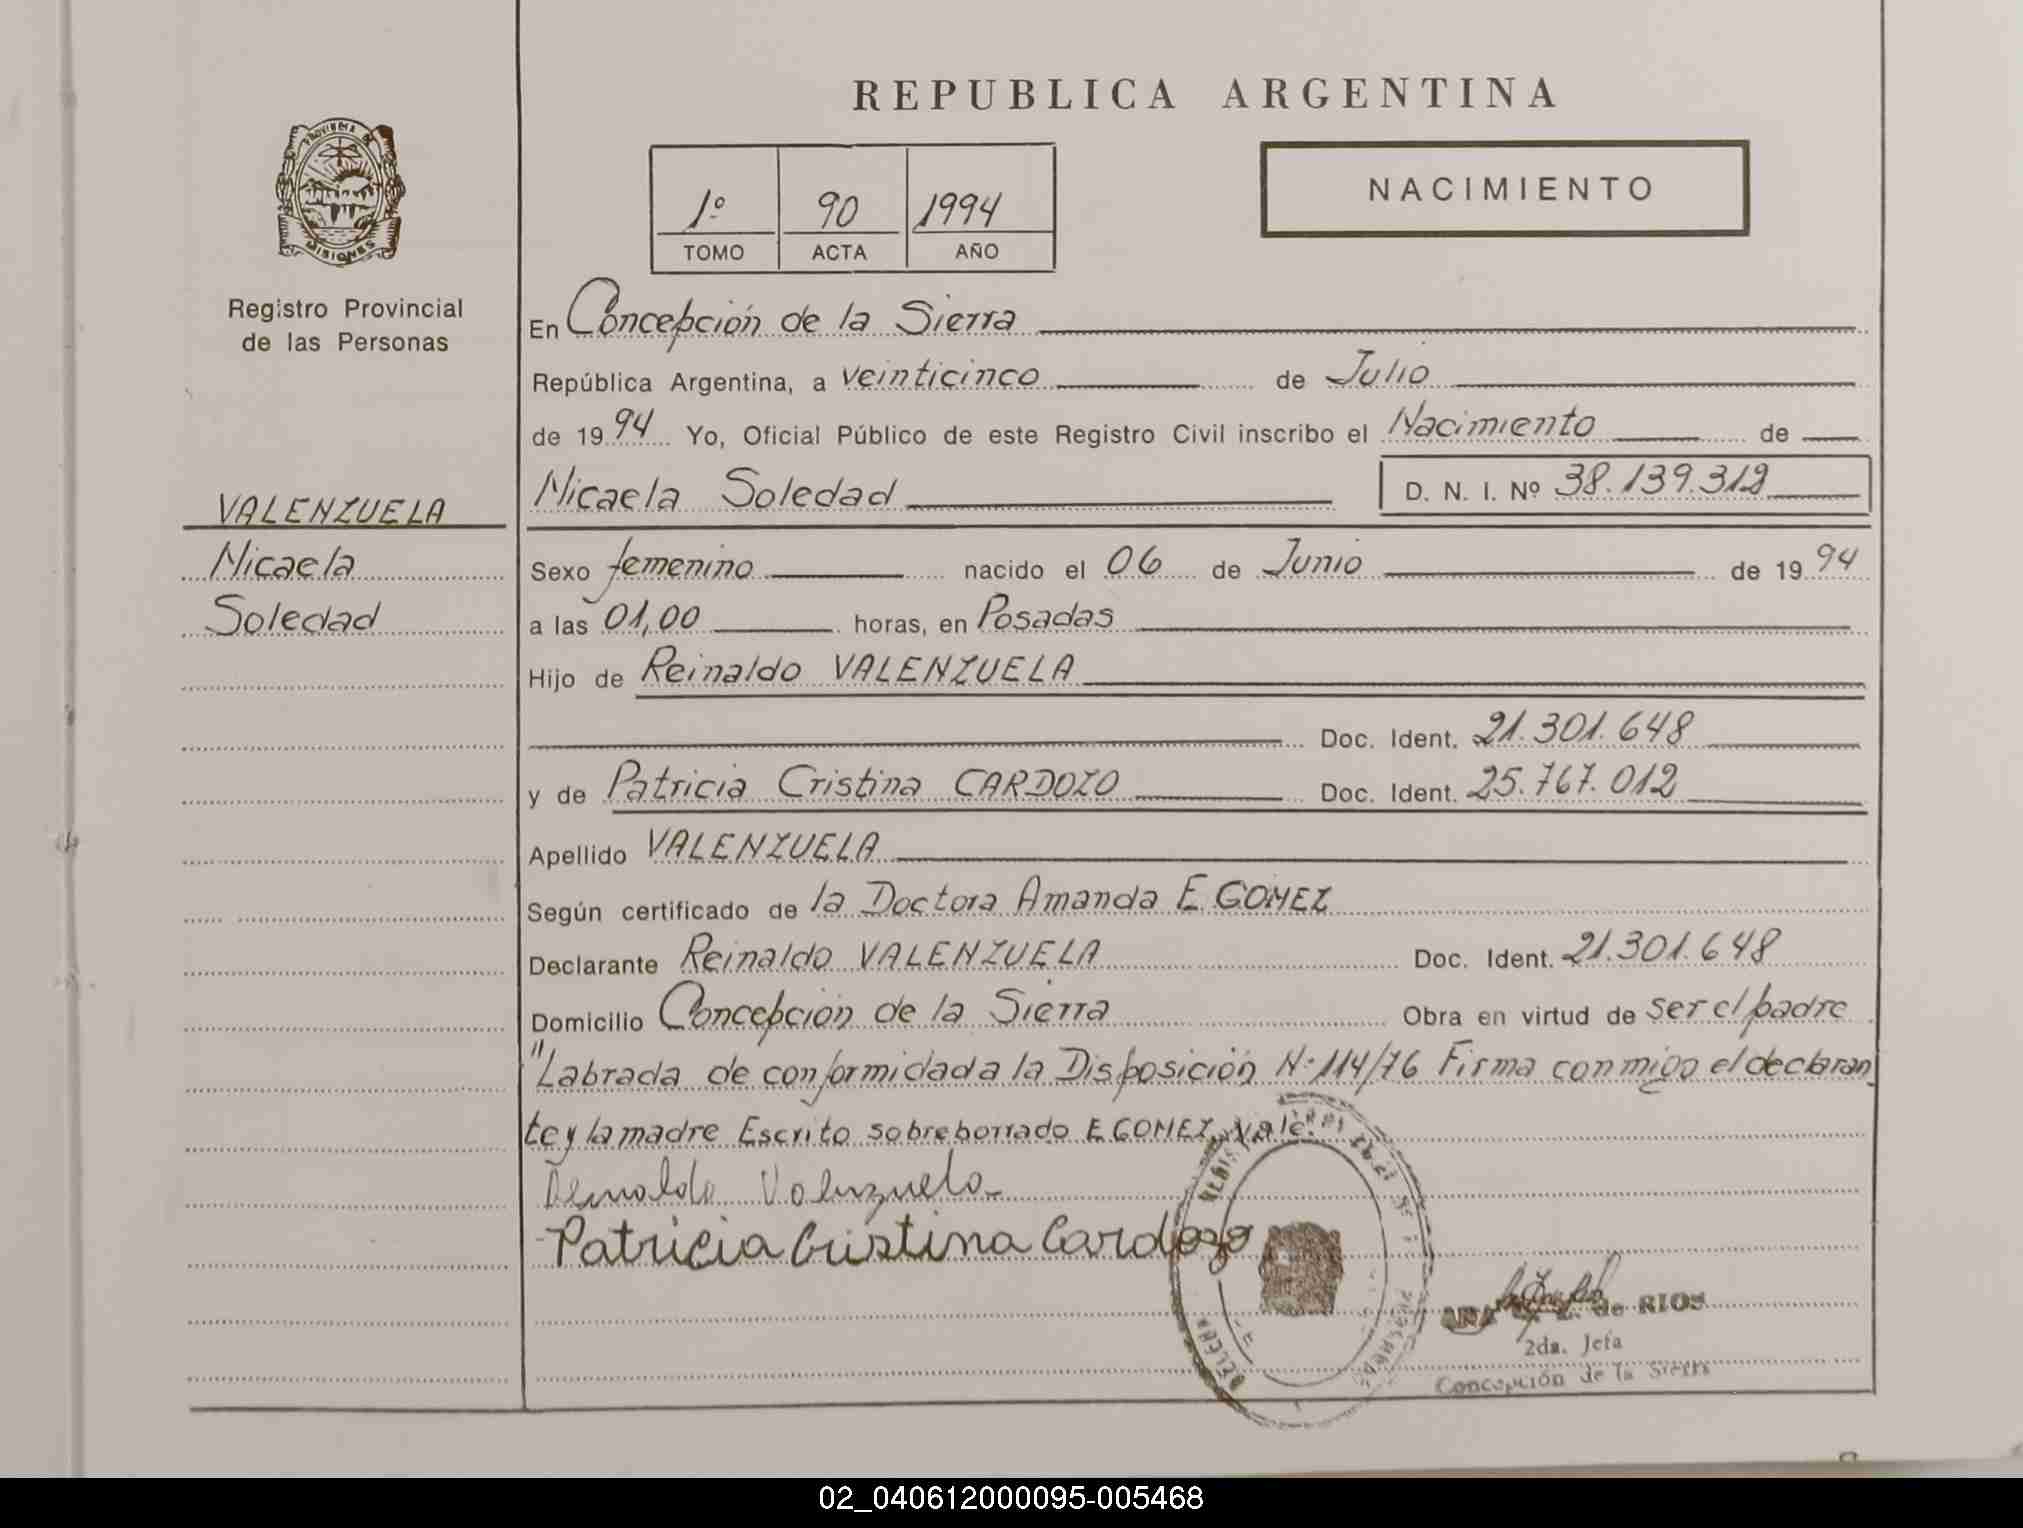 REPUBLICA ARGENTINA
PROVINCIA DE
MISIONES
Registro Provincial
de las Personas
1º 90 1994
TOMO ACTA AÑO
NACIMIENTO
En Concepción de la Sierra
República Argentina, a veinticinco de Julio
de 1994 Yo, Oficial Público de este Registro Civil inscribo el Nacimiento de
Micaela Soledad D. N. I. Nº 38.139.312
VALENZUELA
Micaela
Soledad
Sexo femenino nacido el 06 de Junio de 1994
a las 01,00 horas, en Posadas
Hijo de Reinaldo VALENZUELA
Doc. Ident. 21.301.648
y de Patricia Cristina CARDOZO Doc. Ident. 25.767.012
Apellido VALENZUELA
Según certificado de la Doctora Amanda E GOMEZ
Declarante Reinaldo VALENZUELA Doc. Ident. 21.301.648
Domicilio Concepción de la Sierra Obra en virtud de ser el padre
"Labrada de conformidad a la Disposición Nº 114/76 Firma conmigo el declaran
te y la madre Escrito sobre borrado E GOMEZ, vale.
Reinaldo Valenzuela
Patricia Cristina Cardozo
de RIOS
2da. Jefa
Concepción de la Sierra
02_040612000095-005468